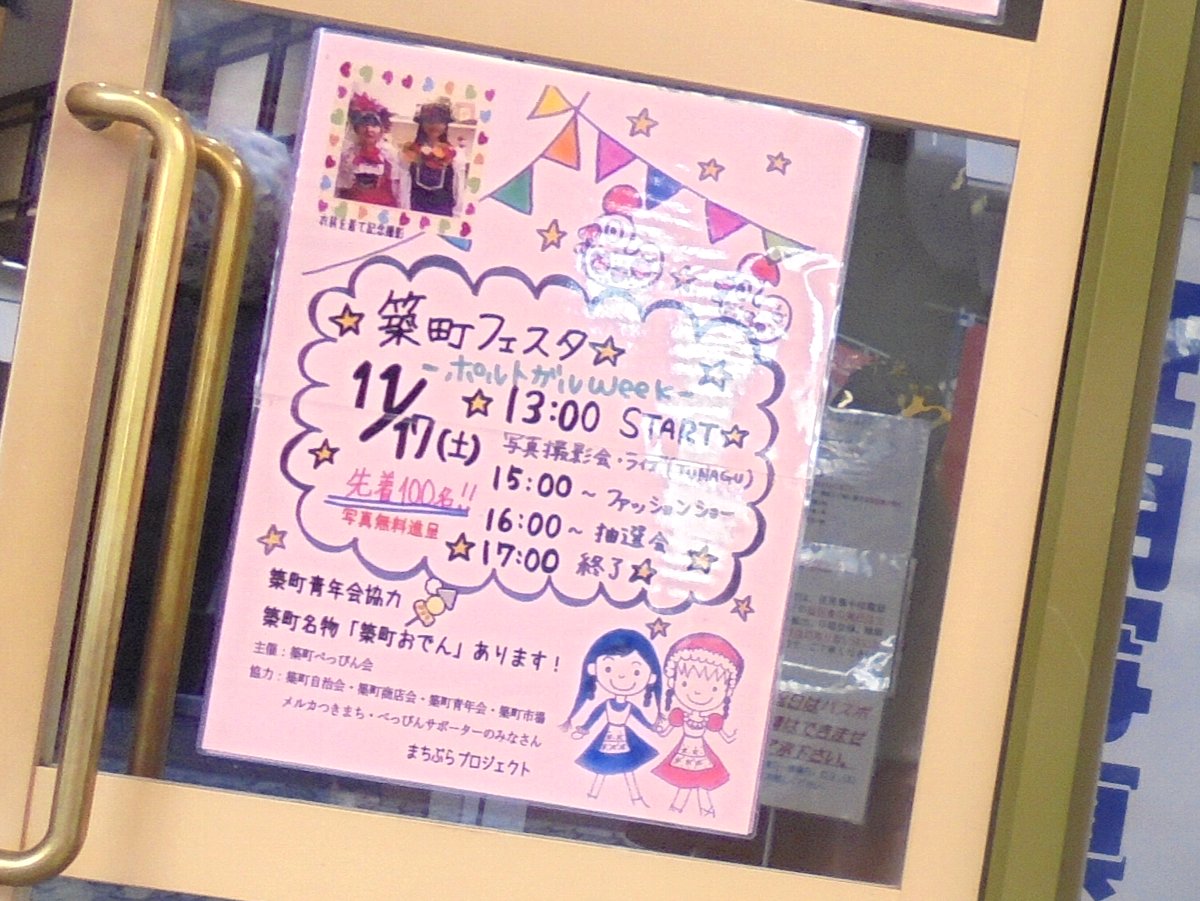 衣装を着て記念撮影
築町フェスタ
-ポルトガルweek-
11/17(土)
13:00 START
写真撮影会・ライブ(TUNAGU)
先着100名!!
写真無料進呈
15:00～ファッションショー
16:00～抽選会
17:00 終了
築町青年会協力
築町名物「築町おでん」あります!
主催:築町べっぴん会
協力:築町自治会・築町商店会・築町青年会・築町市場
メルカつきまち・べっぴんサポーターのみなさん
まちぶらプロジェクト